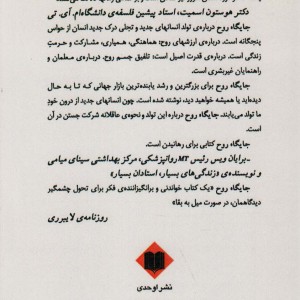 دکتر هوستون اسمیت، استاد پیشین فلسفه‌ی دانشگاه‌ام. آی. تی
جایگاه روح درباره‌ی تولد انسانهای جدید و تجلی درک جدید انسان از حواس
پنجگانه است. درباره‌ی ارزشهای روح: هماهنگی، همیاری، مشارکت و حرمتِ
زندگی است. درباره‌ی مسیول اعمال خود بودن است؛ تلفیق جسم روح. معلمان و
راهنمایان غیربشری است.
جایگاه روح برای بزرگترین و رشد یابنده‌ترین بازار جهانی که تا به حال
دیده‌اید یا همیشه خواهید دید، نوشته شده است. چون انسانهای جدید از درونِ خودِ
ما تولد می‌یابند. جایگاه روح درباره این تولد و نحوه‌ی عاقلانه شرکت جستن در آن
است.
جایگاه روح کتابی برای رهانیدن است.
ـ برایان ویس رئیس MT روانپزشکی، مرکز بهداشتی سینای میامی
و نویسنده‌ی «زندگی‌های بسیار، استادان بسیار»
جایگاه روح «یک کتاب خواندنی و برانگیزاننده‌ی فکر برای تحول چشمگیر
دیدگاهمان، در صورت میل به بقا»
روزنامه‌ی لایبرری
نشر اوحدی